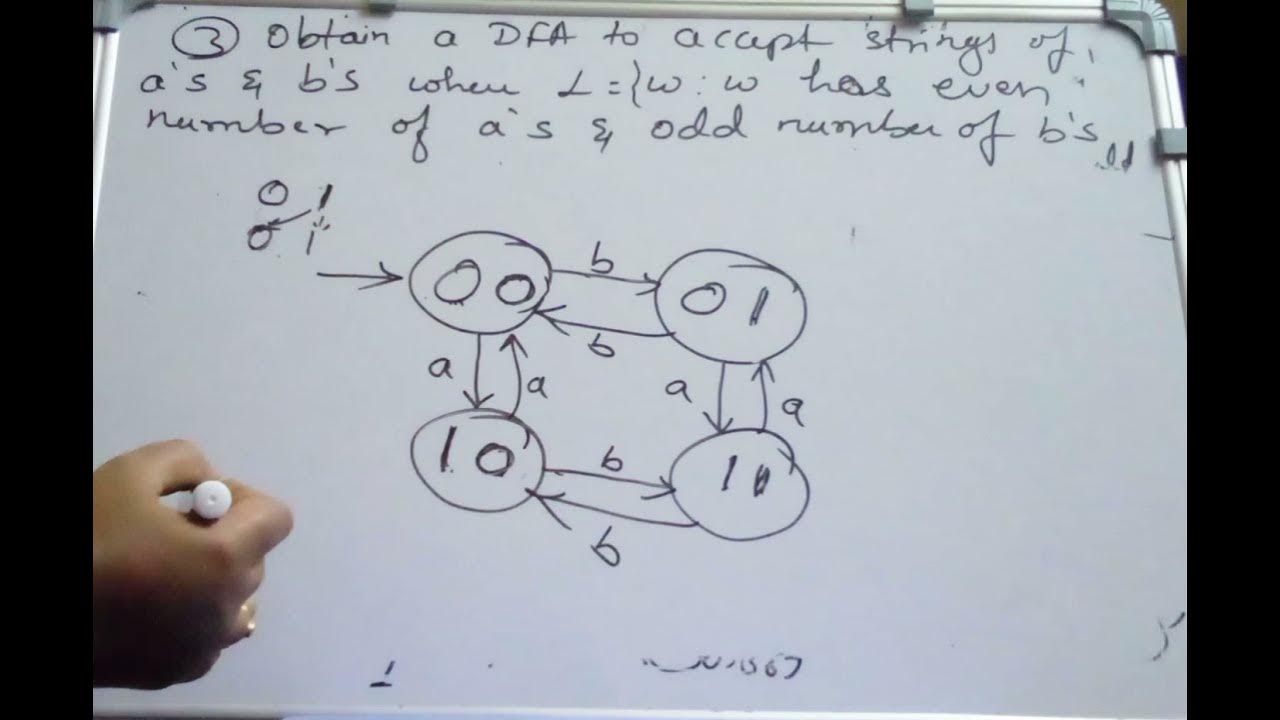 ③ Obtain a DFA to accept strings of
a's & b's when L = {w : w has even
number of a's & odd number of b's
0 1
0 1
0 0
b
0 1
b
a
a
a
a
1 0
b
1 1
b